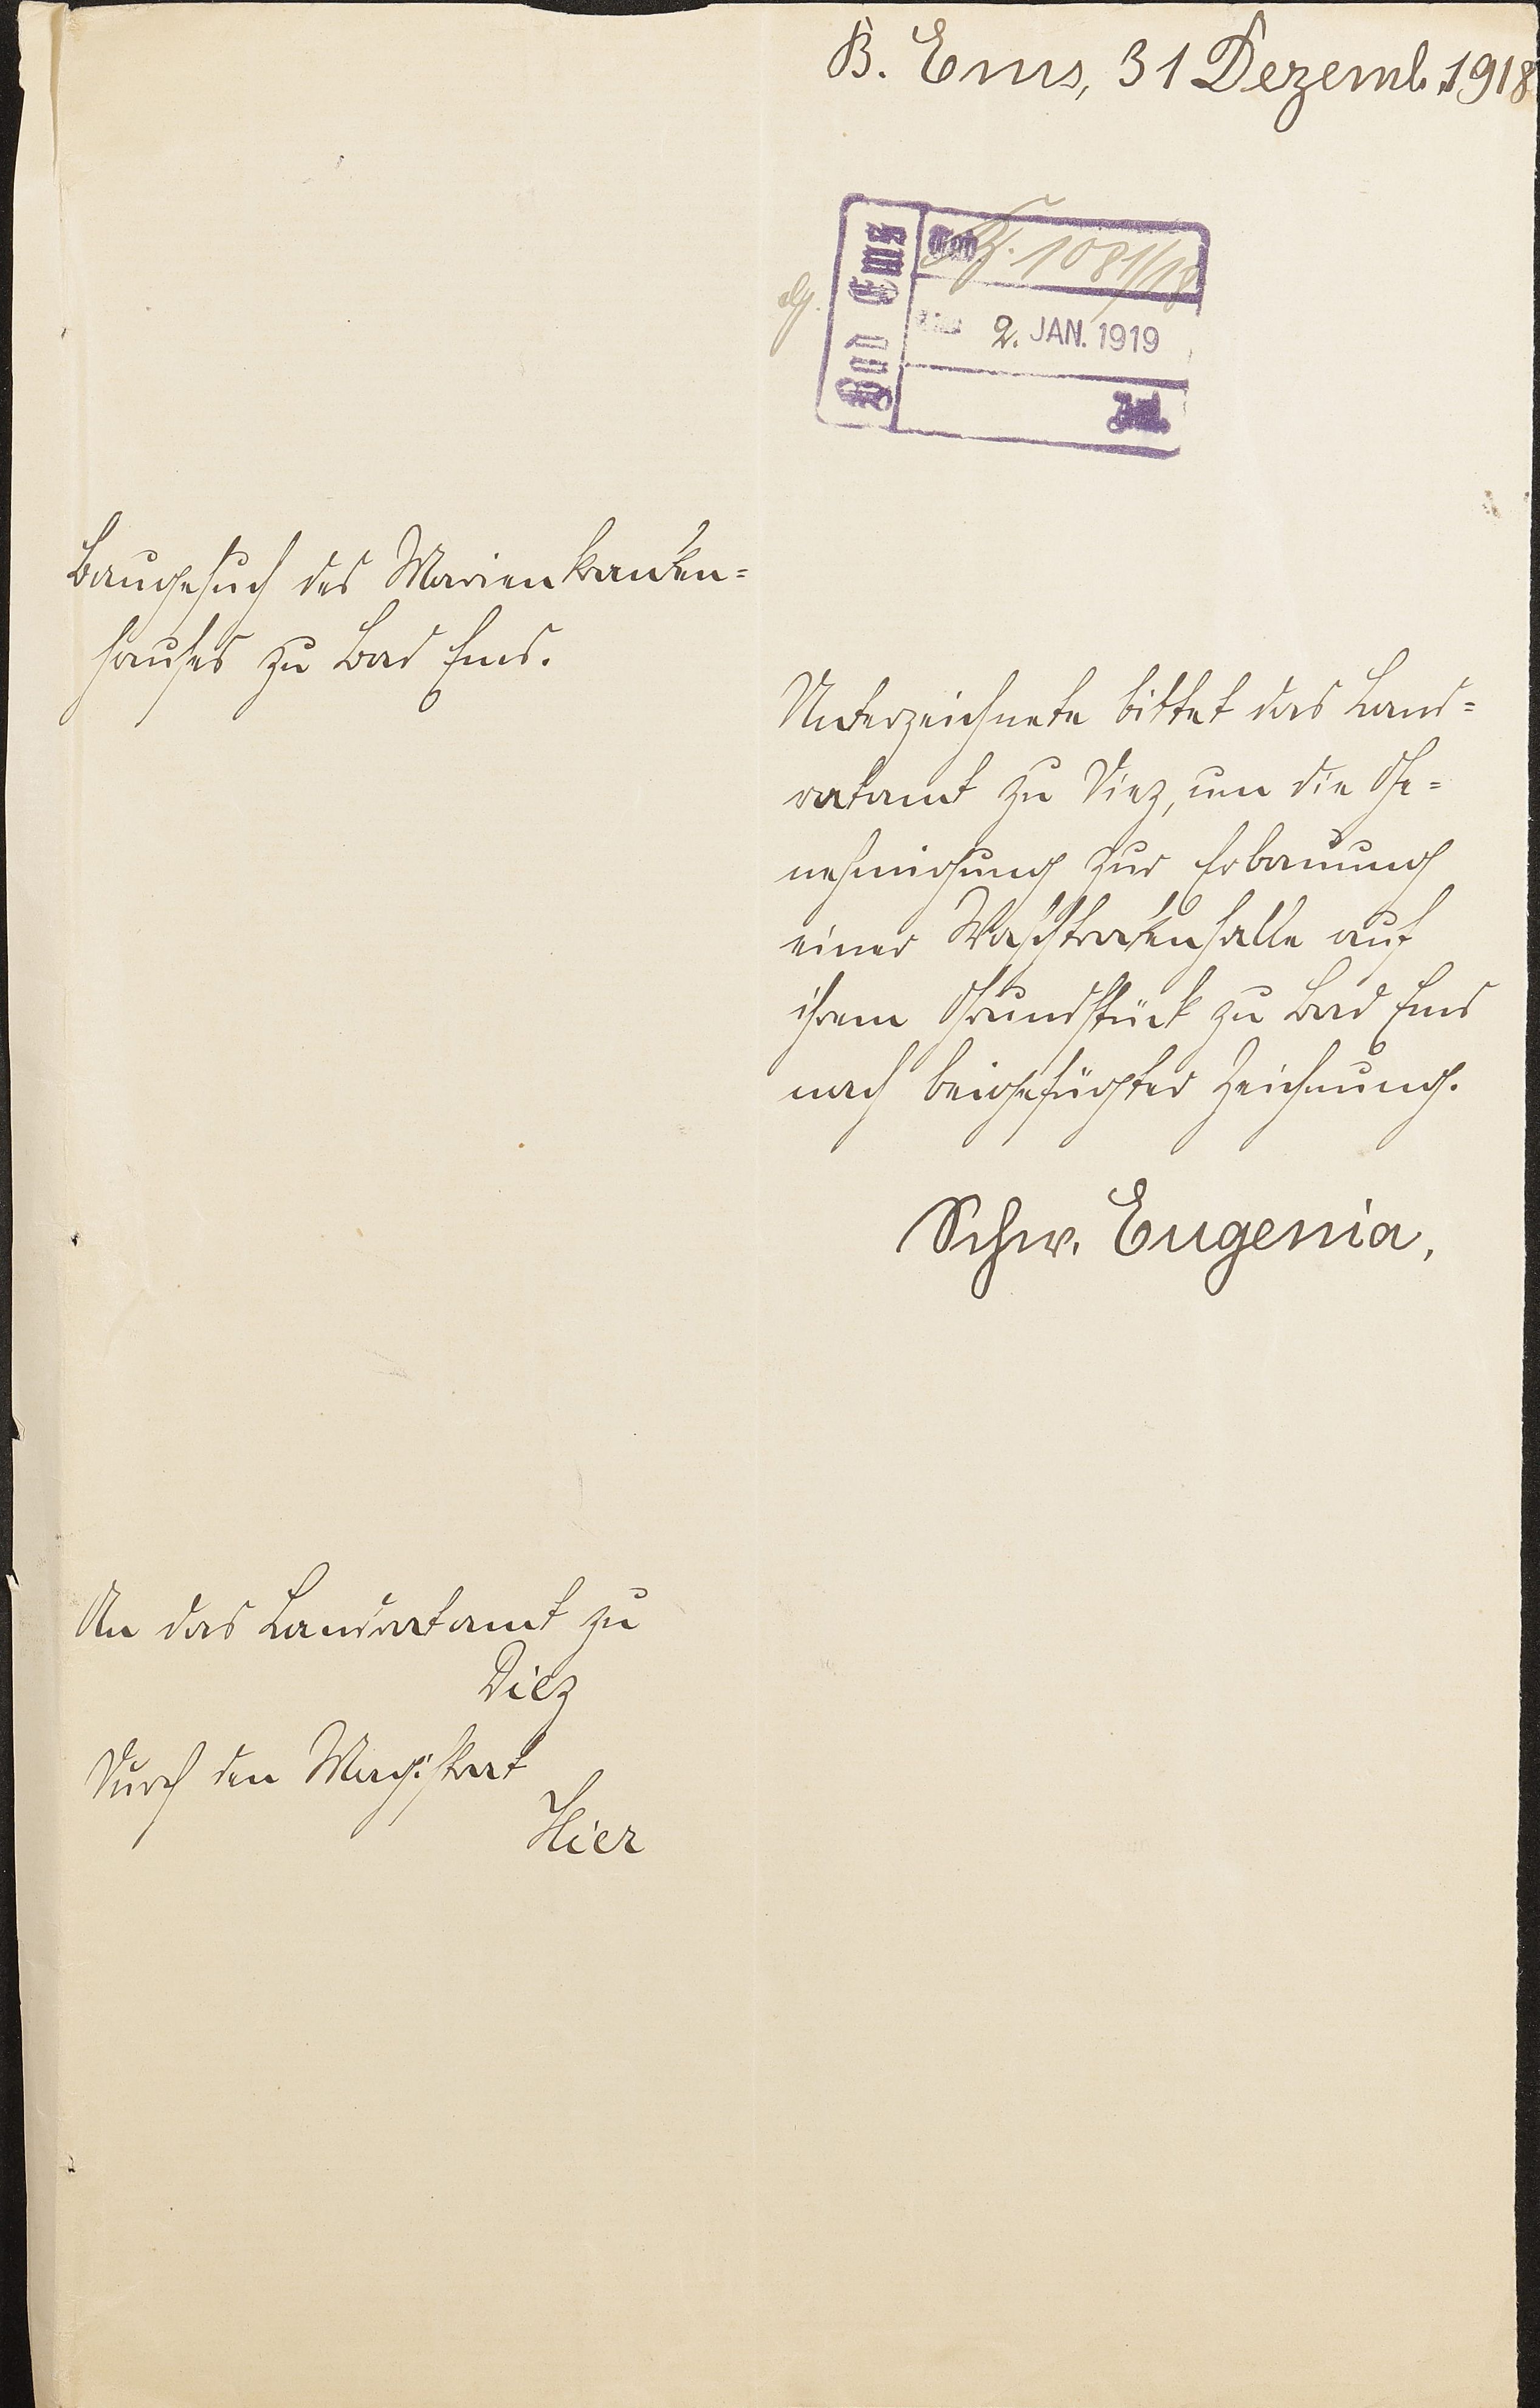 B. Ems, 31 Dezemb. 1918
Bad Ems
Tgb. 1081/18
2. JAN. 1919
Baugesuch des Marienkranken=
hauses zu Bad Ems.
Unterzeichnete bittet das Land=
ratamt zu Diez, um die Ge=
nehmigung zur Erbauung
einer Waschtrockenhalle auf
ihrem Grundstück zu Bad Ems
nach beigefügter Zeichnung.
Schw. Eugenia,
An das Landratamt zu
Diez
Durch den Magistrat
Hier